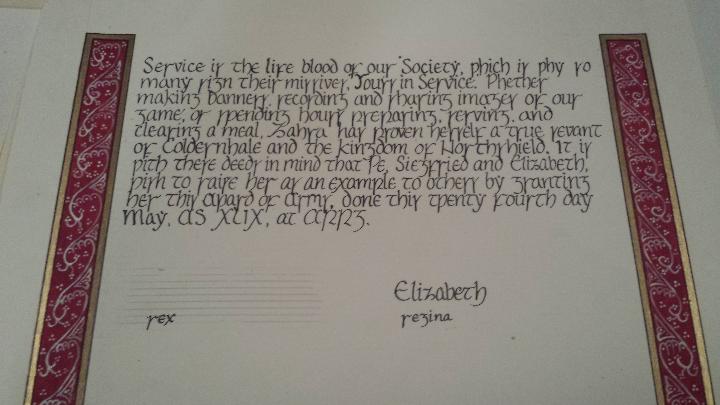 Service is the life blood of our Society, which is why so
many sign their missives, Yours in Service. Whether
making banners, recording and sharing images of our
game, or spending hours preparing, serving, and
clearing a meal, Zahra has proven herself a true servant
of Coldernhale and the kingdom of Northshield. It is
with these deeds in mind that We, Siegfried and Elizabeth,
wish to raise her as an example to others by granting
her this Award of Arms, done this twenty fourth day
May, AS XLIX, at
Elizabeth
rex
regina